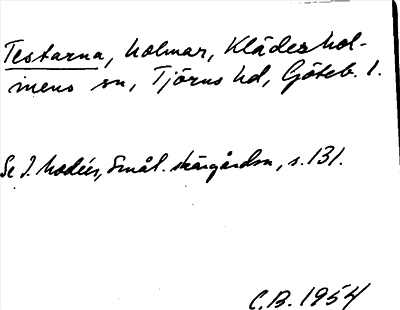 Testarna, holmar, Klädeshol-
mens sn, Tjörns hd, Göteb. l.
Se I. Modéer, Smål. skärgårdsn, s. 131.
C.B. 1954